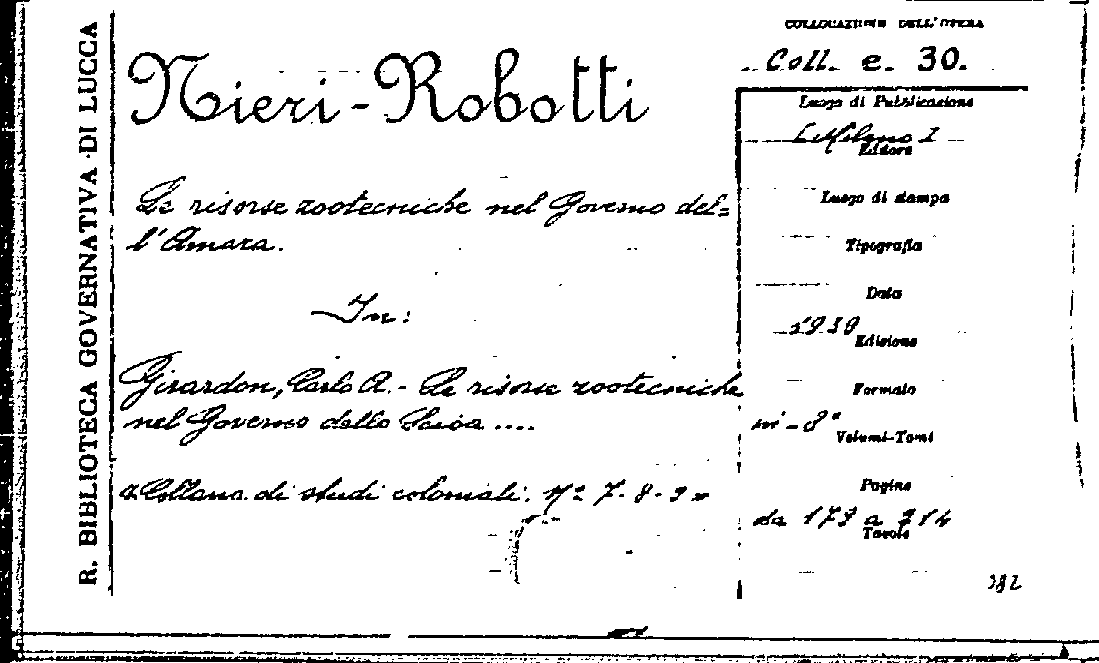 R. BIBLIOTECA GOVERNATIVA DI LUCCA
Nieri-Robotti
Le risorse zootecniche nel Governo del=
l'Amara.
In:
Girardon, Carlo A. - Le risorse zootecniche
nel Governo dello Scioa ....
"Collana di studi coloniali. Nº 7-8-9"
COLLOCAZIONE DELL'OPERA
Coll. e. 30.
Luogo di Pubblicazione
[Milano]
Editore
Luogo di stampa
Tipografia
Data
1939
Edizione
Formato
in-8°
Volumi-Tomi
Pagine
da 179 a 214
Tavole
382